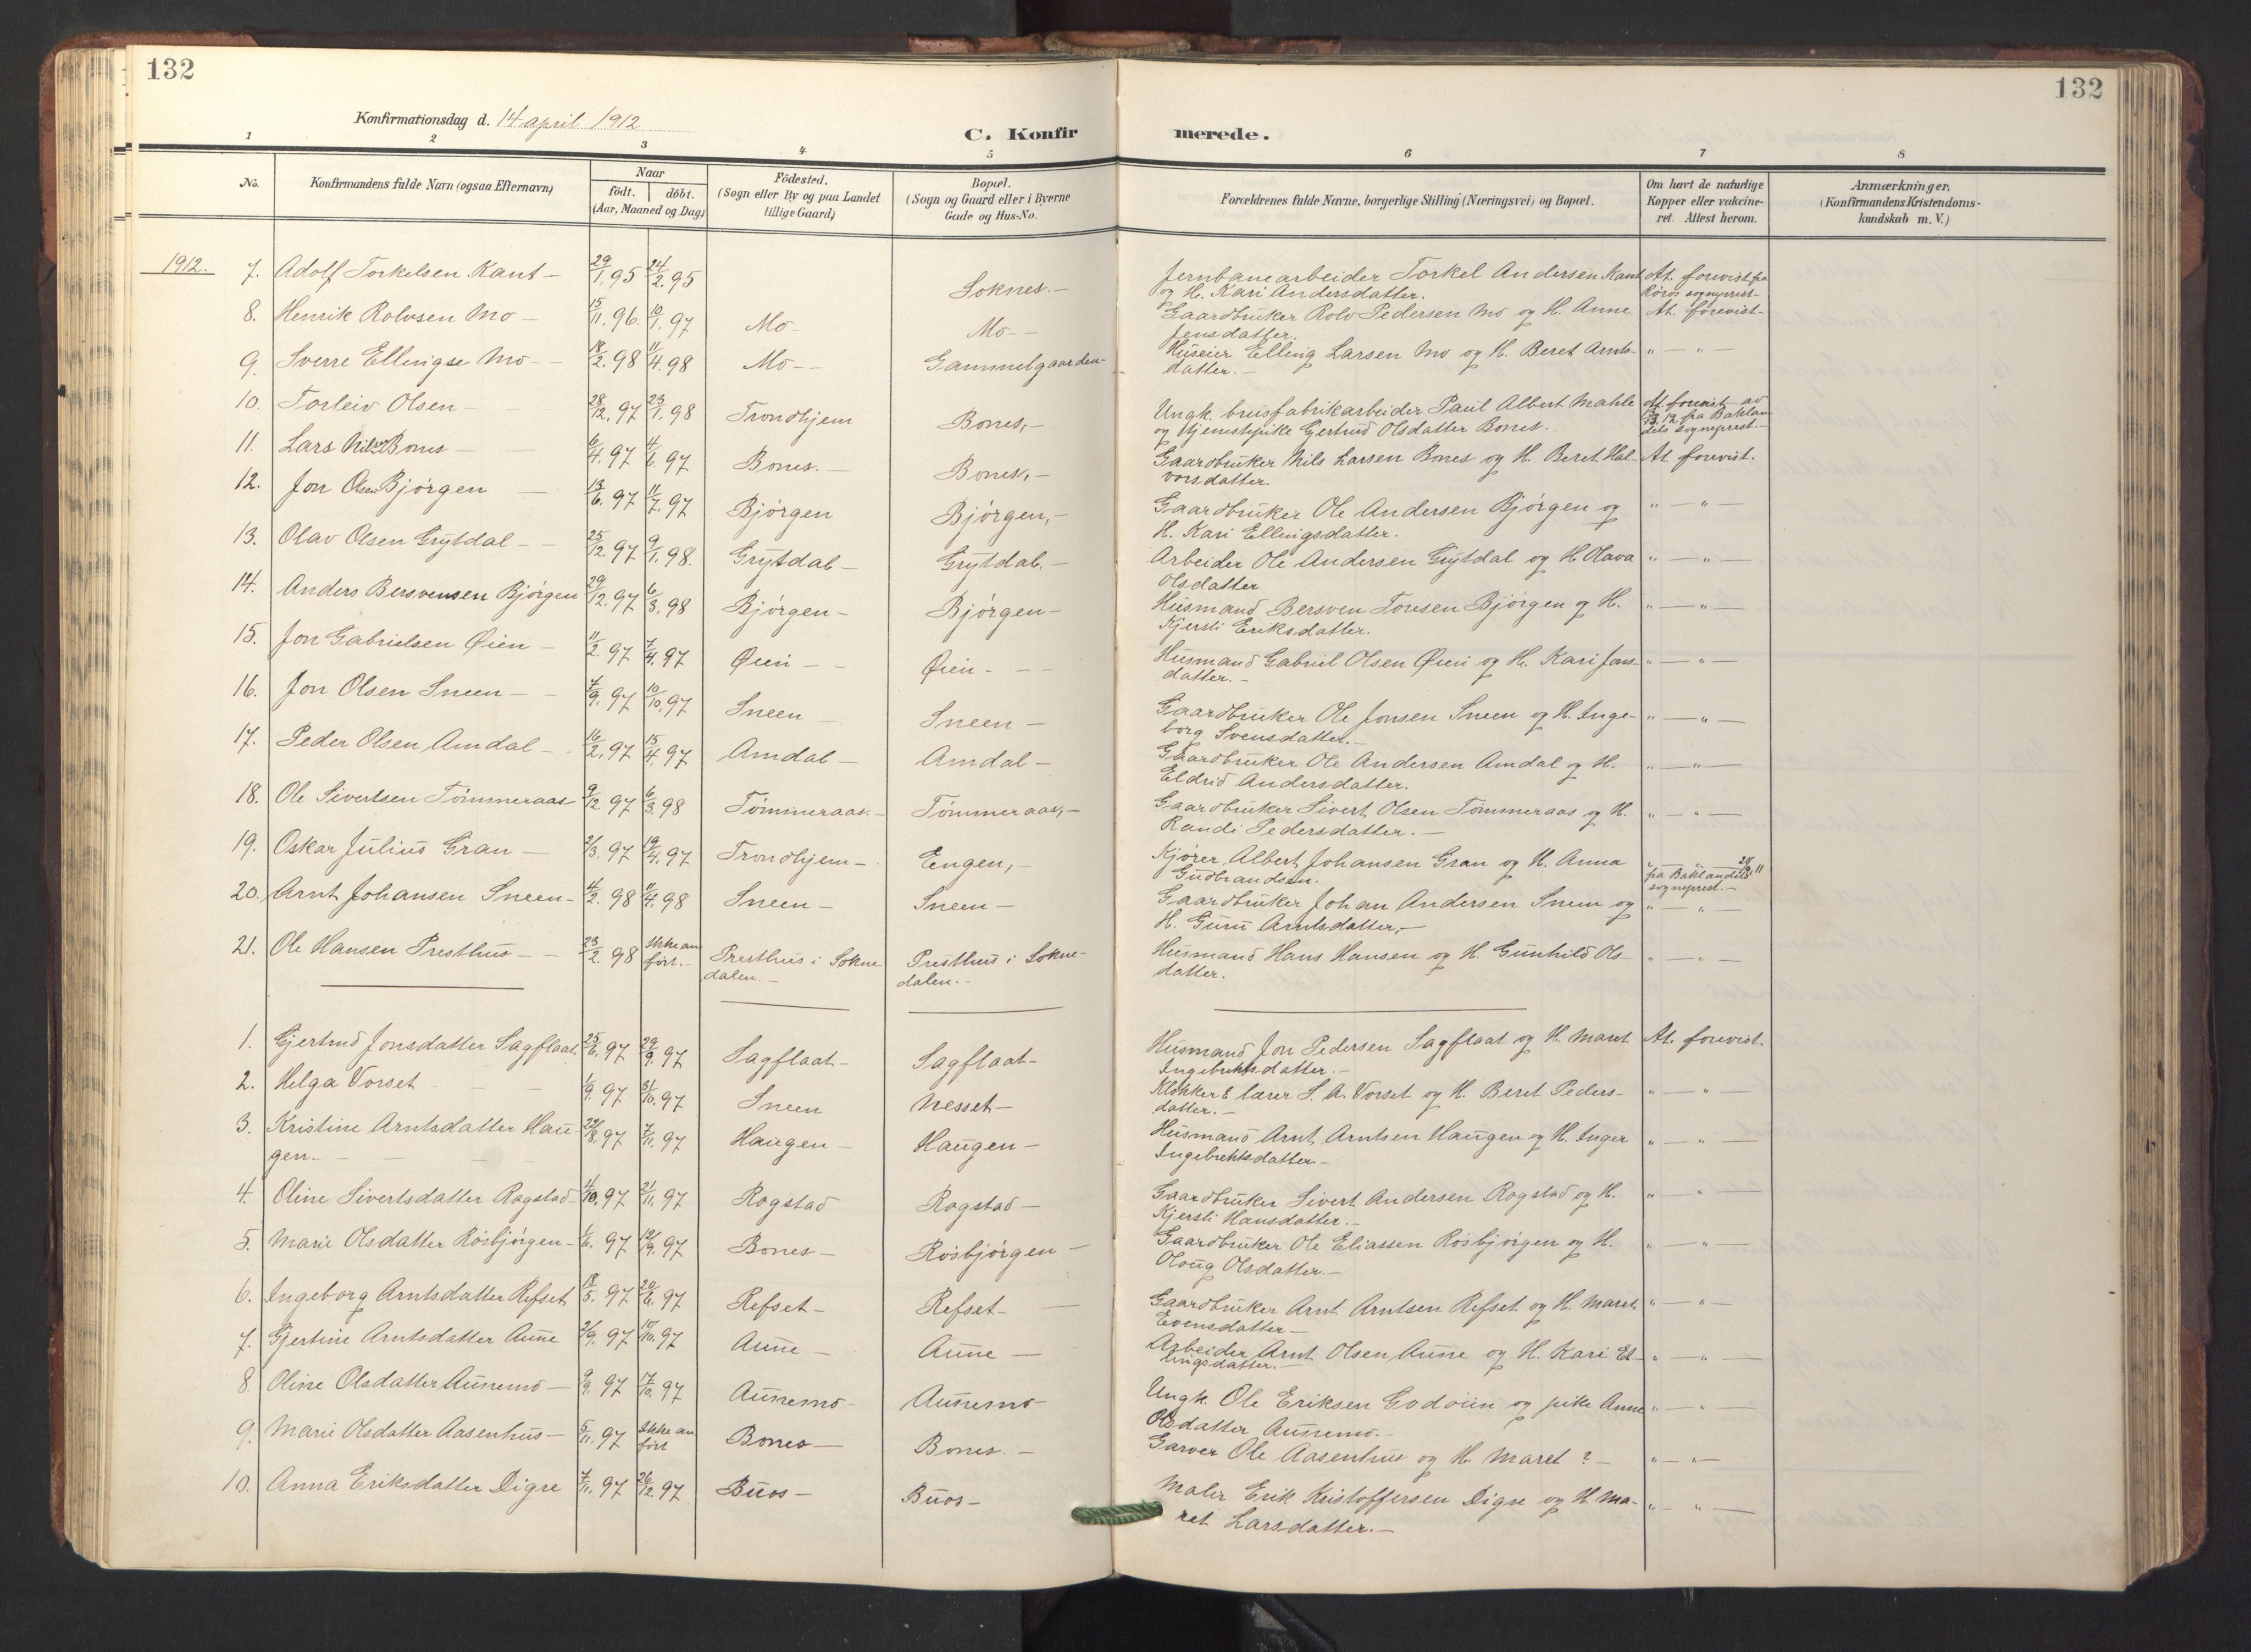 132
132
Konfirmationsdag d. 14 april 1912
C. Konfir merede.
1 2 3 4 5 6 7 8
No.
Konfirmandens fulde Navn (ogsaa Efternavn)
Naar
födt. döbt.
(Aar, Maaned og Dag)
Födested.
(Sogn eller By og paa Landet
tillige Gaard)
Bopæl.
(Sogn og Gaard eller i Byerne
Gade og Hus-No.
Forældrenes fulde Navne, borgerlige Stilling (Næringsvei) og Bopæl.
Om havt de naturlige
Kopper eller vakcine-
ret. Attest herom.
Anmærkninger.
(Konfirmandens Kristendoms-
kundskab m. V.)
1912. 7. Adolf Torkelsen Kant - 29/1. 95 24/2. 95 Soknes. - Jernbanearbeider Torkel Andersen Kant At. forevist fra
og H. Kari Andersdatter. Röros sogneprest -
8. Henrik Rolvsen Mo - 15/11. 96. 10/1. 97 Mo - Mo - Gaardbruker Rolv Pedersen Mo og H. Anne At. forevist -
Jensdatter.
9. Sverre Ellingse Mo - 18/2. 98 11/4. 98 Mo - - Gammelgaarden - Huseier Elling Larsen Mo og H. Beret Arnts- " - " -
datter. -
10. Torleiv Olsen - 28/12. 97 23/1. 98 Trondhjem Bones, - Ungk. brusfabrikarbeider Paul Albert Mahle At. forevist av
og tjenestepike Gjertrud Olsdatter Bones. 13/3. 12 fra Baklan
dets sogneprest. -
11. Lars Nilsen Bones - 6/4. 97 4/6. 97 Bones. - Bones, - Gaardbruker Nils Larsen Bones og H. Beret Hal- At. forevist.
vorsdatter.
12. Jon Olsen Bjørgen - 13/6. 97 11/7. 97 Bjørgen Bjørgen, - Gaardbruker Ole Andersen Bjørgen og " - " -
H. Kari Ellingsdatter.
13. Olav Olsen Grytdal - 25/12. 97 9/1. 98. Grytdal - Grytdal. - Arbeider Ole Andersen Grytdal og H. Olava " - " -
Olsdatter
14. Anders Bersvensen Bjørgen 29/12. 97 6/3. 98 Bjørgen - Bjørgen - Husmand Bersven Tonsen Bjørgen og H. " - " -
Kjersti Eriksdatter.
15. Jon Gabrielsen Øien - 11/2. 97 7/4. 97 Øien - - Øien - - - Husmand Gabriel Olsen Øien og H. Kari Jons- " - " -
datter. -
16. Jon Olsen Sneen - 7/9. 97 10/10. 97 Sneen - Sneen - Gaardbruker Ole Jonsen Sneen og H. Inge- " - " -
borg Svensdatter. -
17. Peder Olsen Amdal - 16/2. 97 15/4. 97 Amdal - Amdal - Gaardbruker Ole Andersen Amdal og H. " - " -
Eldrid Andersdatter.
18. Ole Sivertsen Tømmeraas - 9/12. 97 6/3. 98 Tømmeraas. - Tømmeraas, - Gaardbruker Sivert Olsen Tømmeraas og H. " - " -
Randi Pedersdatter. -
19. Oskar Julius Gran - 2/3. 97 19/4. 97 Trondhjem - Engen, - Kjører Albert Johansen Gran og H. Anna
Gudbrandsen. fra Baklandets
sogneprest. -
20. Arnt Johansen Sneen - 4/2. 98 11/4. 98 Sneen - Sneen - Gaardbruker Johan Andersen Sneen og " - " -
H. Guru Arntsdatter, -
21. Ole Hansen Presthus - - 23/2. 98 Ikke an Presthus i Sokne Presthus i Sokne- Husmand Hans Hansen og H. Gunhild Ols- " - " -
ført. - dalen. - dalen. - datter.
1. Gjertrud Jonsdatter Sagflaat. 25/6. 97 29/9. 97 Sagflaat - Sagflaat - Husmand Jon Pedersen Sagflaat og H. Marit At. forevist.
Ingebrektsdatter. -
2. Helga Vorset - - - 1/9. 97 31/10. 97 Sneen Nesset - Klokker & lærer S. A. Vorset og H. Beret Peders- " - " -
datter. -
3. Kristine Arntsdatter Hau- 22/8. 97 7/11. 97 Haugen - Haugen - Husmand Arnt Arntsen Haugen og H. Inger " - " -
gen. - - - Ingebrektsdatter -
4. Oline Sivertsdatter Rogstad 4/10. 97 21/11. 97 Rogstad Rogstad - Gaardbruker Sivert Andersen Rogstad og H. " - " -
Kjersti Hansdatter. -
5. Marie Olsdatter Rosbjørgen - 1/6. 97 12/9. 97 Bones - Rosbjørgen - Gaardbruker Ole Eliassen Rosbjørgen og H. " - " -
Oloug Olsdatter. -
6. Ingeborg Arntsdatter Refset 18/5. 97 20/6. 97 Refset - Refset - Gaardbruker Arnt Arntsen Refset og H. Maret " - " -
Evensdatter -
7. Gjertine Arntsdatter Aune 2/9. 97 10/10. 97 Aune - Aune - Arbeider Arnt Olsen Aune og H. Kari El- " - " -
lingsdatter. -
8. Oline Olsdatter Aunemo - 9/9. 97 17/10. 97 Aunemo - Aunemo - Ungk. Ole Eriksen Godøien og pike Anne " - " -
Olsdatter Aunemo. -
9. Marie Olsdatter Aasenhus - 5/11. 97 Ikke an Bones - Bones. - Garver Ole Aasenhus og H. Maret ? - " - " -
ført
10. Anna Eriksdatter Digre 7/11. 97 26/12. 97 Buos - Buos - Maler Erik Kristoffersen Digre og H. Ma- " - " -
ret Larsdatter. -